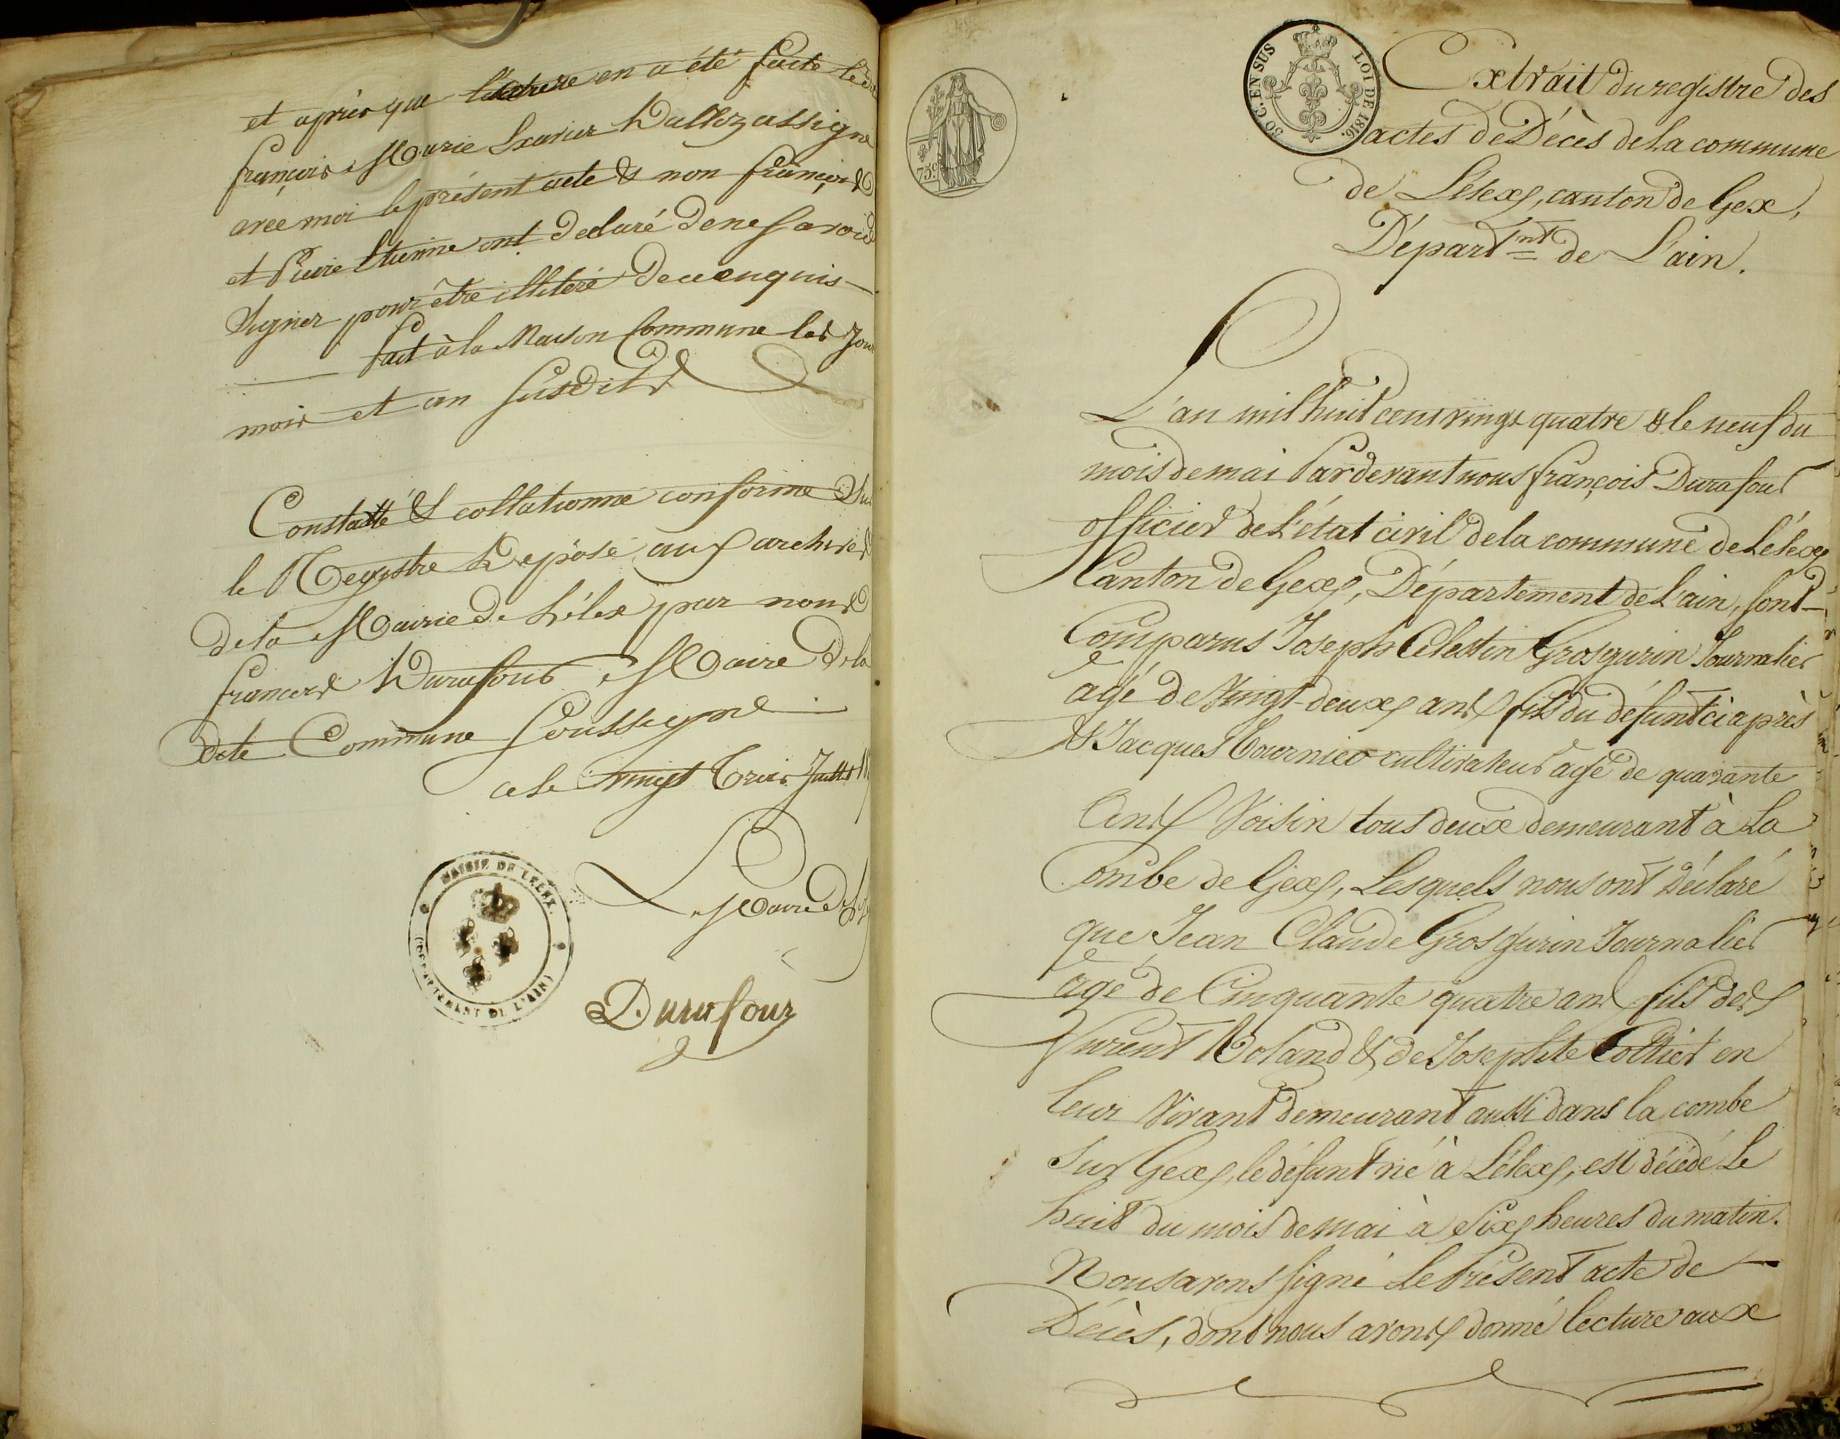 et après que lecture en a été faite les dits
françois Marie Xavier Dallozassigné
avec moi le présent acte & non françois
et Pierre Etienne ont declaré denesavoir
signer pour être illiteré dececenquis
fait à la Maison Commune les Jour
mois et an susdits
Constatté & collationné conforme Sur
le Registre Déposé aux archives
dela Mairie de Lélex par nous
françois Durafour Maire dela
dite Commune soussigné
cele vingt trois Juillet
Le Maire de
Durafour
MAIRIE DE LELEX.
(DÉPARTEMENT DE L'AIN)
75c
50 C. EN SUS
LOI DE 1816.
Extrait du registre des
actes de Décès de la commune
de Lélex, canton de Gex,
Départmt de L'ain.
L'an mil huit cent vingt quatre & le neuf du
mois de mai Pardevant nous françois Durafour
officier de L'état civil dela commune de Lélex
Canton de Gex, Département de L'ain, sont
Comparus Joseph Célestin Grosgurin Journalier
agé de Vingt-deux ans fils du défunt ci après
& Jacques Tournier cultivateur agé de quarante
ans Voisin tous deux demeurant à La
Combe de Gex, Lesquels nous ont Déclaré
que Jean Claude Grosgurin Journalier
agé de Cinquante quatre ans fils de
furent Roland & de Josephte en
leur Vivant demeurant aussi dans la combe
sur Gex, le défunt né à Lélex, est décédé Le
huit du mois de mai à Six heures du matin.
Nous avons signé Le Présent acte de
Décès, dont nous avons donné lecture aux